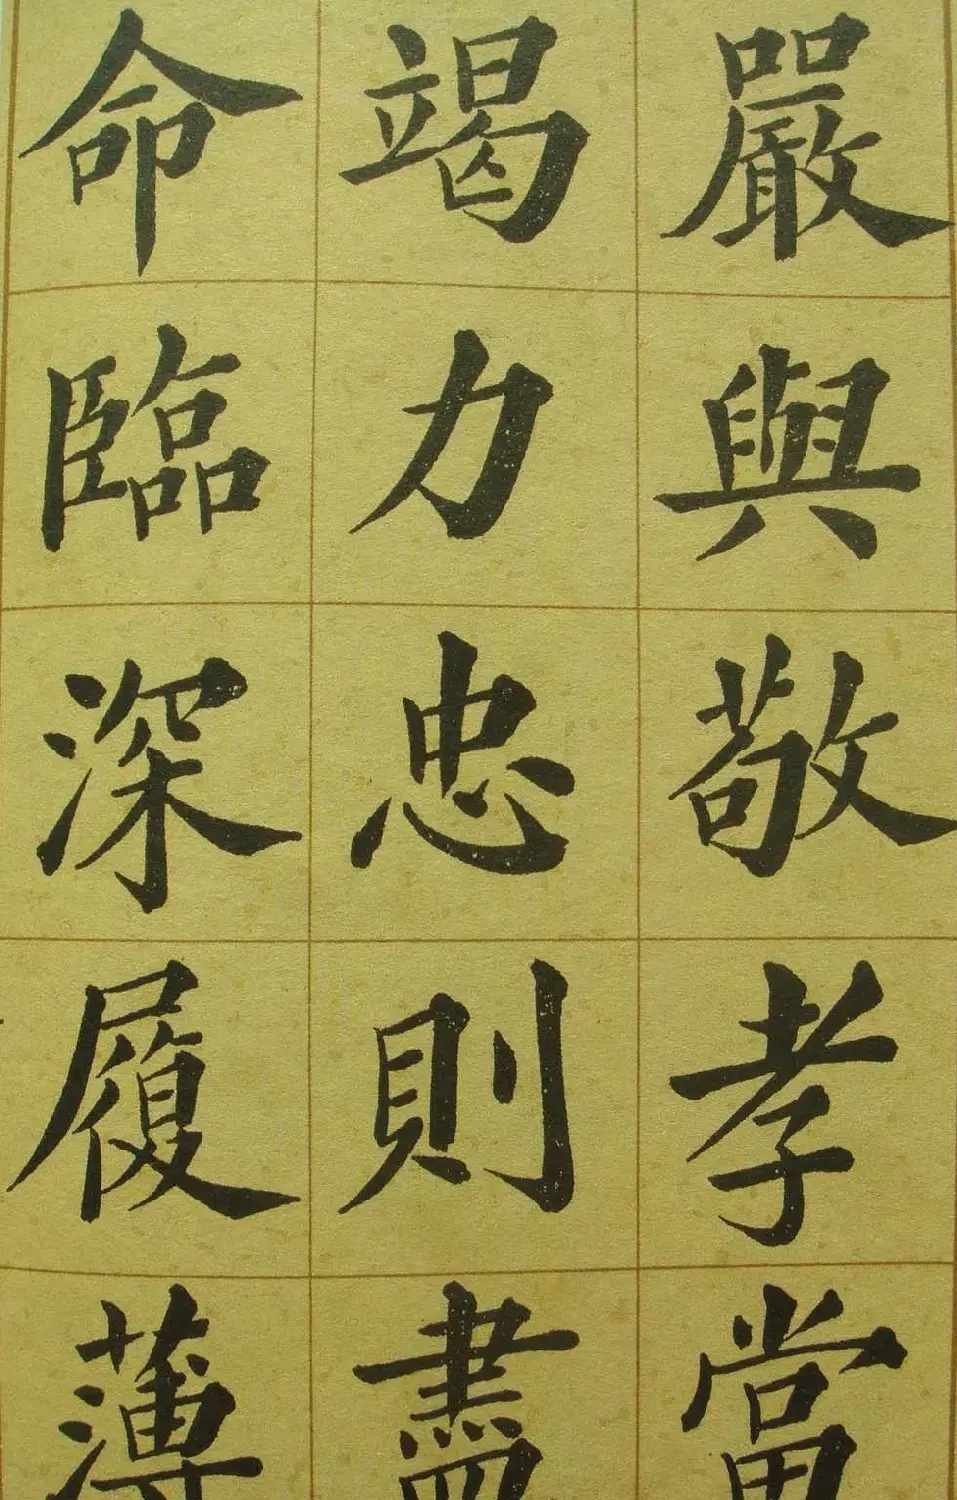 嚴與敬孝當
竭力忠則盡
命臨深履薄